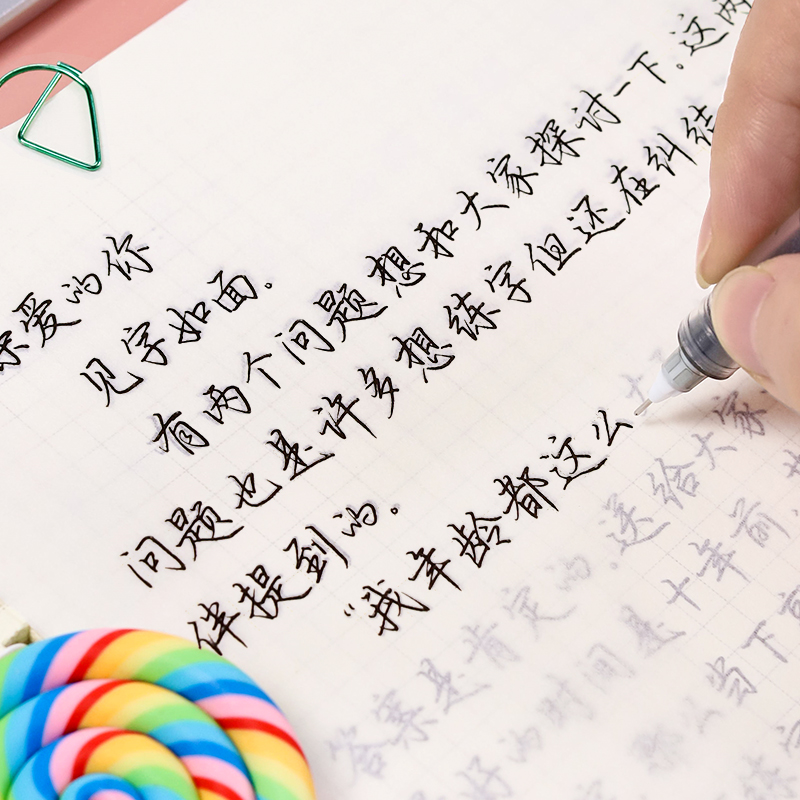 亲爱的你
见字如面。
有两个问题想和大家探讨一下。这两
问题也是许多想练字但还在纠结
伴提到的。
“我年龄都这么
答案是肯定的。送给大家
好的时间是十年前，
那么当下